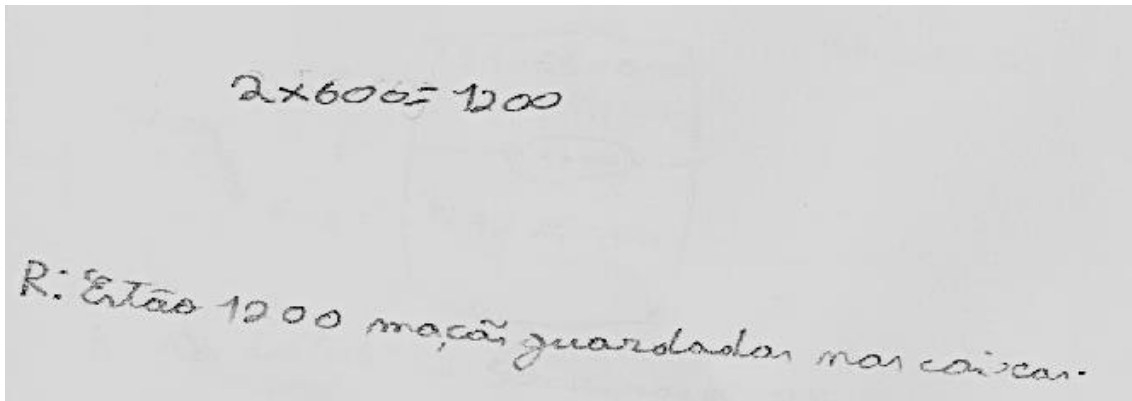 2×600=1200
R: Estão 1200 maçãs guardadas nas caixas.